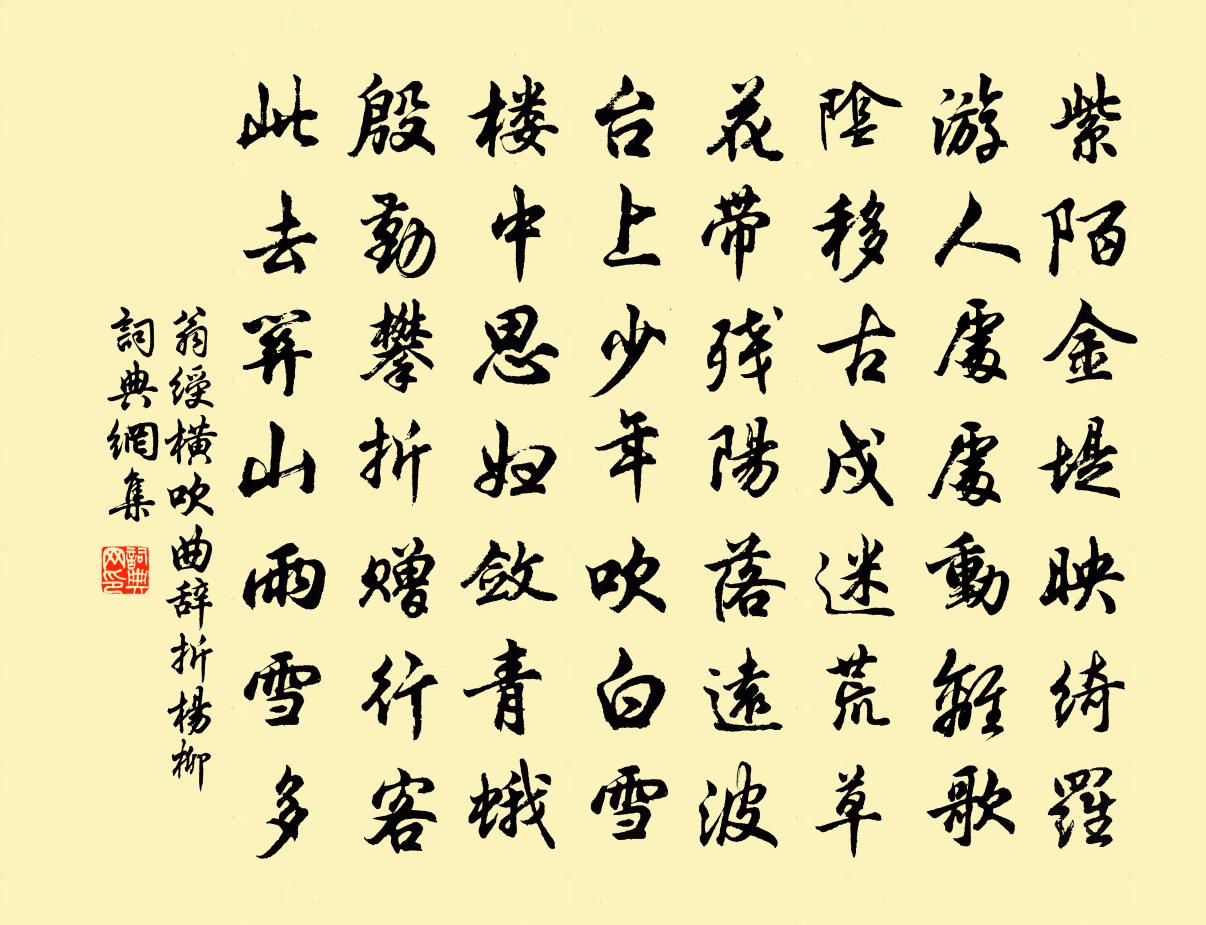 紫陌金堤映绮羅
游人處處動離歌
陰移古戍迷荒草
花带残陽落遠波
台上少年吹白雪
楼中思妇敛青蛾
殷勤攀折赠行客
此去関山雨雪多
翁绶横吹曲辞折楊柳
詞典網集
詞典网印